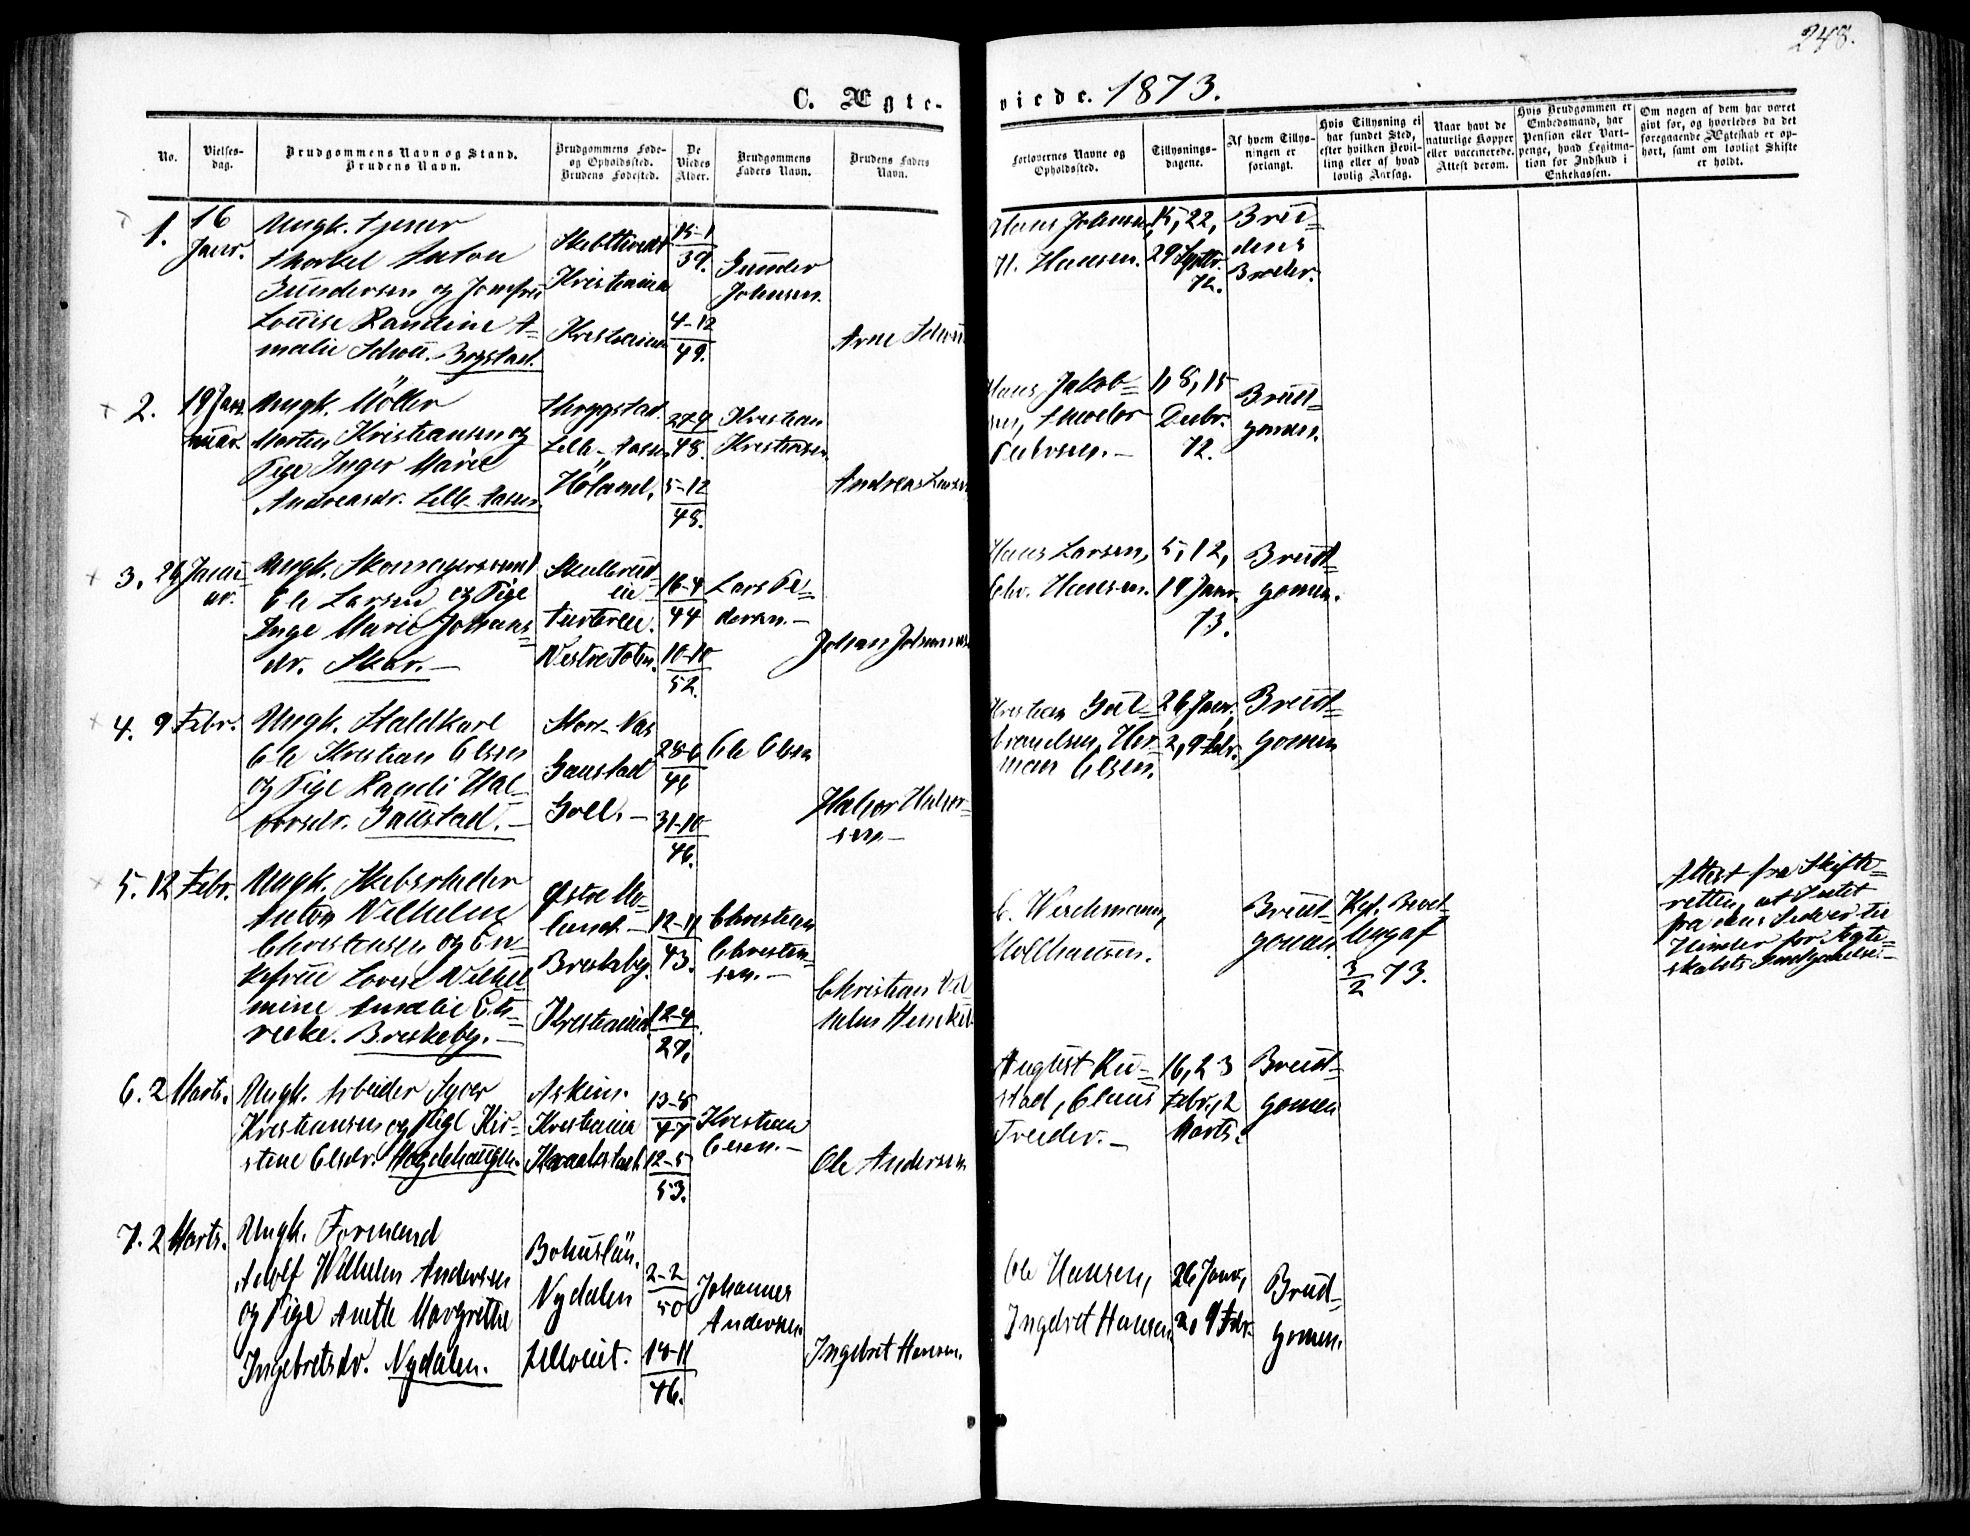 248.
C. Ægte-
viede. 1873.
No.
Vielses-
dag.
Brudgommens Navn og Stand.
Brudens Navn.
Brudgommens Føde-
og Opholdssted.
Brudens Fødested.
De
Viedes
Alder.
Brudgommens
Faders Navn.
Brudens Faders
Navn.
Forlovernes Navne og
Opholdssted.
Tillysnings-
dagene.
Af hvem Tillys-
ningen er
forlangt.
Hvis Tillysning ei
har fundet Sted,
efter hvilken Bevil-
ling eller af hvad
lovlig Aarsag.
Naar havt de
naturlige Kopper
eller vaccinerede.
Attest derom.
Hvis Brudgommen er
Embedsmand, har
Pension eller Vart-
penge, hvad Legitima-
tion for Indskud i
Enkekassen.
Om nogen af dem har været
gift før, og hvorledes da det
foregaaende Ægteskab er op-
hørt, samt om lovligt Skifte
er holdt.
1.
16
Janr.
Ungk. Tjener
Thorkel Anton
Gundersen og Jomfru
Louise Randine A-
malie Schou. Bogstad.
Kristiania
Kristiania
15-1
39.
4-12
49.
Gunder
Johnsen.
Arne Schou
Hans Johnsen,
H. Hansen.
15, 22,
29 Septbr.
72.
Bru-
dens
Broder.
2.
19 Jan-
nuar.
Ungk. Möller
Morten Kristiansen og
Pige Inger Marie
Andreasdr. Lille-Aasen.
Lille-Aasen
Höland.
27-9
48.
5-12
48.
Kristian
Kristiansen.
Andreas Larsen
Hans Jakob-
Pedersen.-
1, 8, 15
Decbr.
72.
Brud-
gomen.
3.
26 Janu-
ar.
Ungk. Skomagersvend
Ole Larsen og Pige
Inge Marie Johans-
dr. Skar.-
Vestre Toten.
16-4
44
10-10
52.
Lars Pe-
dersen.-
Johan Johannes
Hans Larsen,
Chr. Hansen.
5, 12,
19 Janr.
73.
Brud-
gomen.
4.
9 Febr.
Ungk. Staldkarl
Ole Kristian Olsen
og Pige Randi Hal-
vorsdr. Gaustad.-
Gaustad
Goll.-
28-6
46
31-10
46.
Ole Olsen
Halvor Halvor-
sen.-
Kristian Gul-
brandsen, Her-
man Olsen.
26 Janr.,
2, 9 Febr.
Brud-
gomen
5.
12 Febr.
Ungk.
Anton Vilhelm
Christensen og En-
kefrue Lovise Vilhel-
mine Amalie
Briskeby.-
Briskeby.
Kristiania
12-11
43.
12-4
27.
Christian
Christen-
sen.-
Christian Vil-
helm Henckel
Brud-
gomen
Kgl. Bevil-
ling af
3/2 73.
Attest fra Skifte-
retten, at Intet
fra dens Side er til
Hinder for Ægte-
skabets Indgaaelse.-
6.
2 Marts.
Ungk. Arbeider Syver
Kristiansen og Pige Kir-
stine Olsdr. Hægdehaugen.
Askim.
Kristiania
Kraakstad.
13-8
47
12-5
53.
Kristian
Olsen.-
Ole Andersen
August Ru-
stad, Claus
16, 23
Febr., 2
Marts.
Brud-
gomen
7.
2 Marts.
Ungk. Formand
Adolf Wilhelm Andersen
og Pige Anette Margrethe
Ingebretsdr. Nydalen.
Bohuslän.
Nydalen
2-2
50
18-11
46.
Johannes
Andersen
Ingebret Hansen.
Ole Hansen,
Ingebret Hansen
26 Janr.,
2, 9 Febr.
Brud-
gomen.